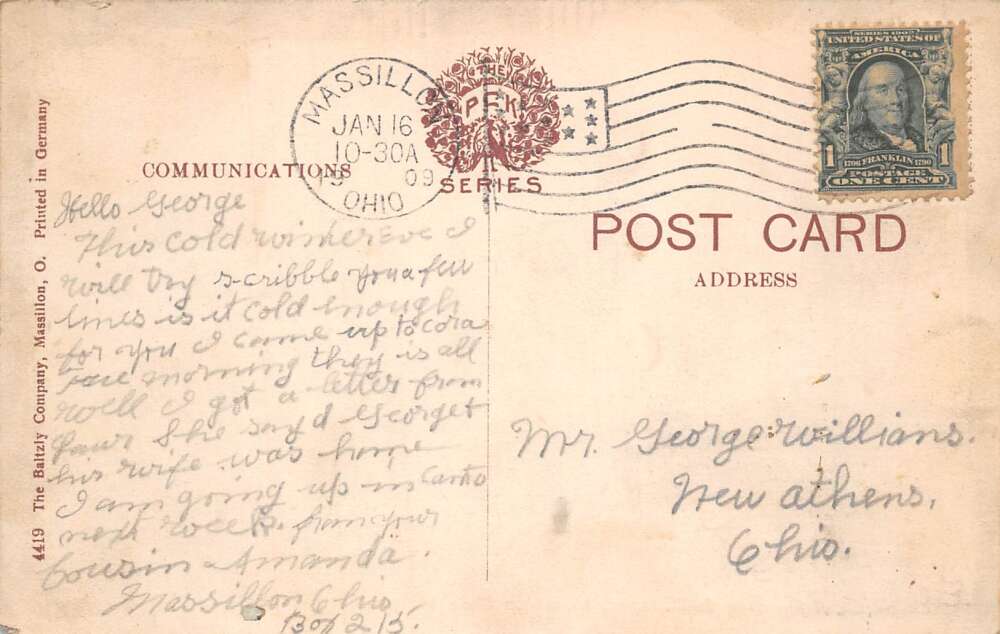 MASSILLON
JAN 16
10-30A
1909
OHIO
THE
P F K
SERIES
SERIES 1902
UNITED STATES OF
AMERICA
1 1706 FRANKLIN 1790 1
POSTAGE
ONE CENT
COMMUNICATIONS
POST CARD
ADDRESS
4419 The Baltzly Company, Massillon, O. Printed in Germany
Hello George
This cold winter Eve I
will try scribble you a few
lines is it cold enough
for you I came up to Cora
morning they is all
well I got a letter from
She say d George t
his wife was home
I am going up in Canto
next week. from your
Cousin Amanda.
Massillon Ohio
Box 215.
Mr. George Willians.
New Athens,
Ohio.